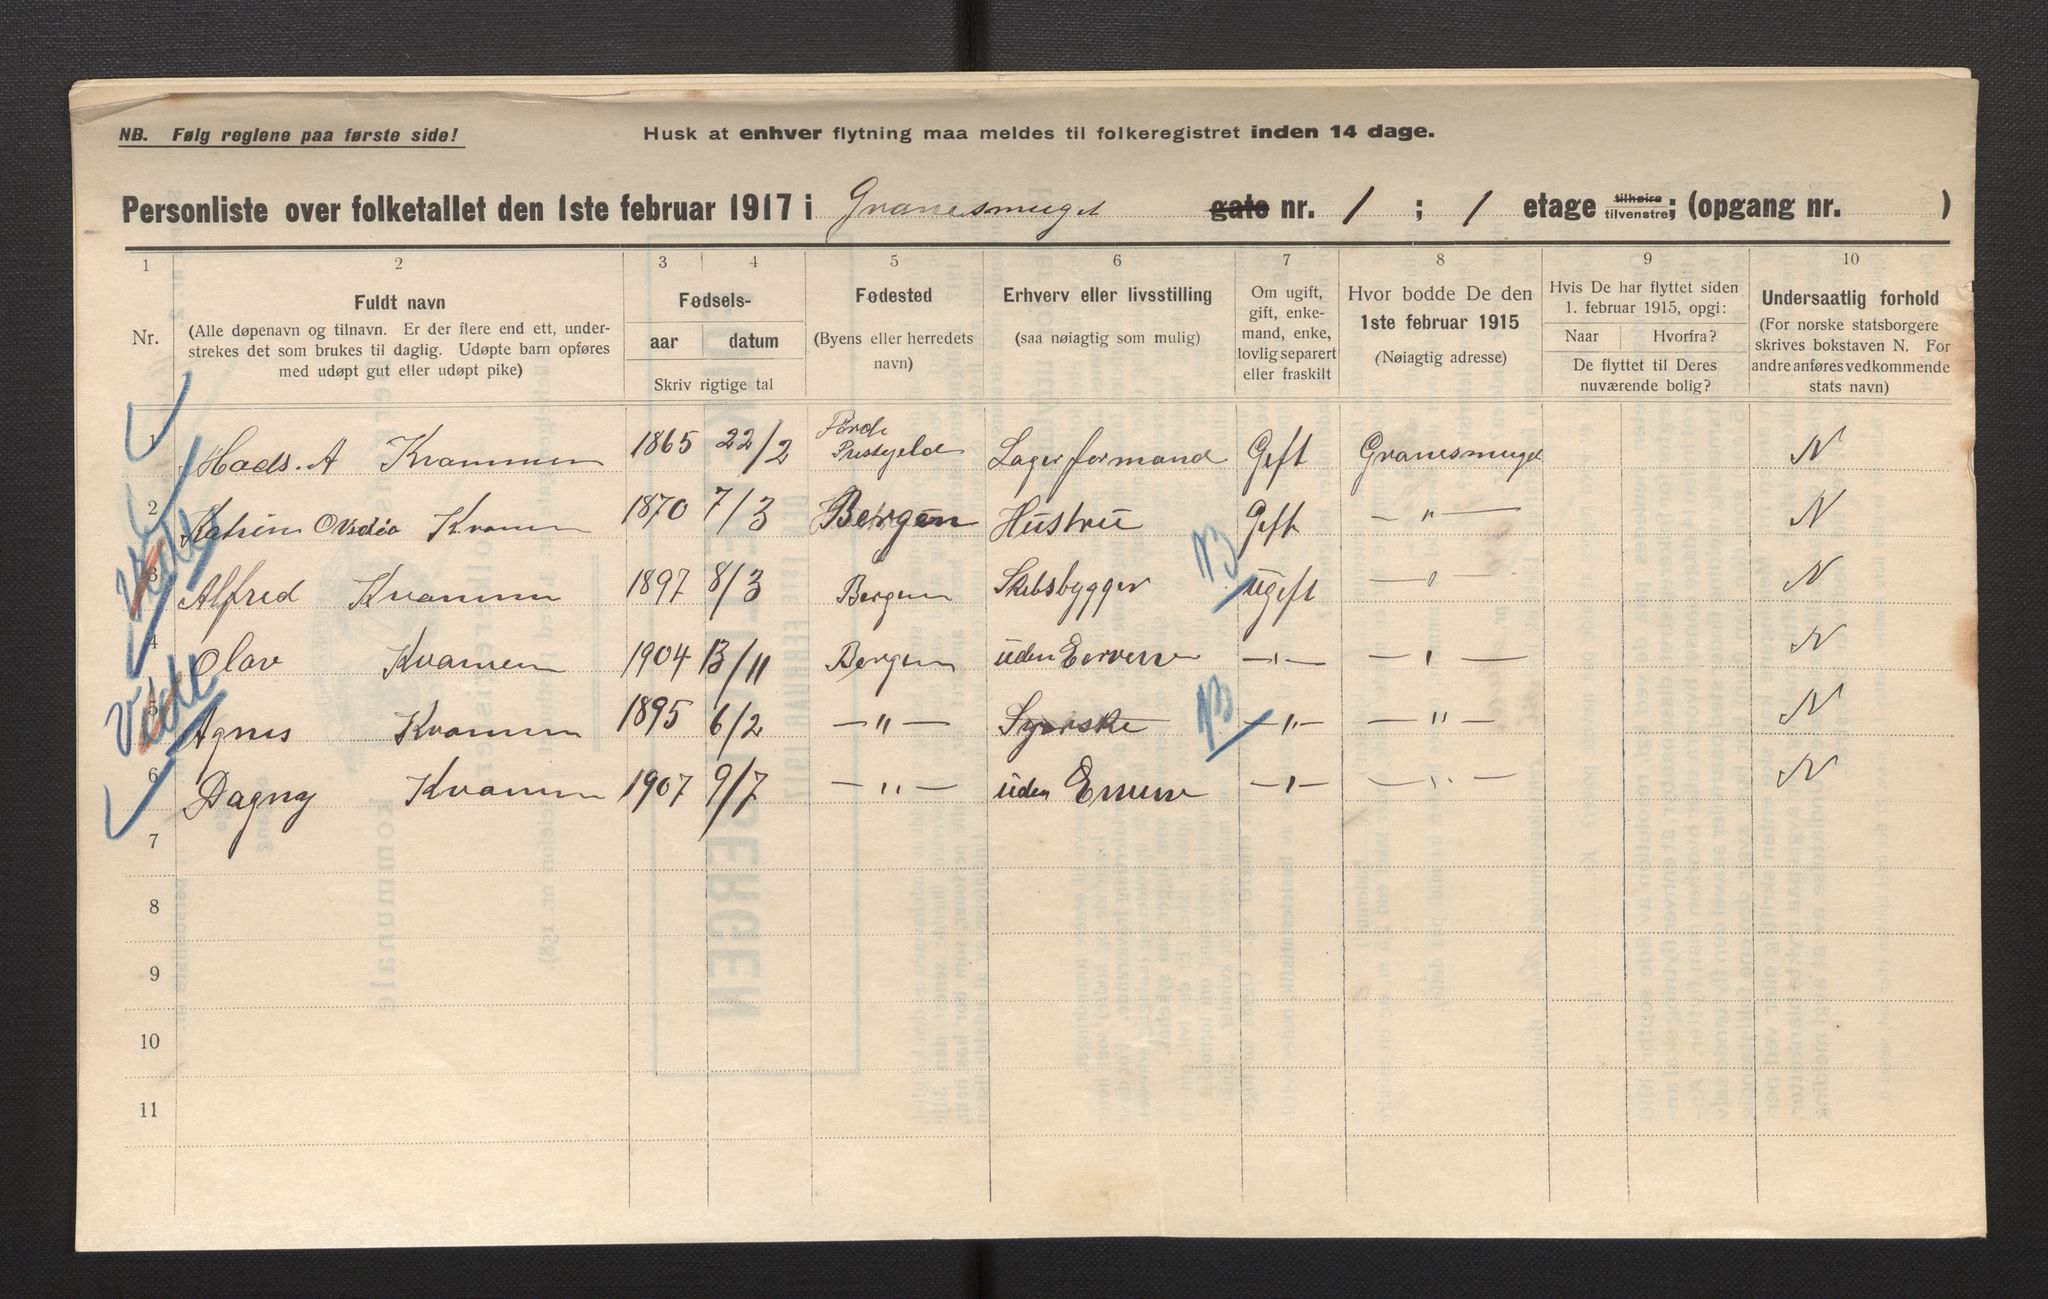 NB. Følg reglene paa første side! Husk at enhver flytning maa meldes til folkeregistret inden 14 dage.
Personliste over folketallet den 1ste februar 1917 i Granesmuget gate nr. 1 ; 1 etage tilhøire tilvenstre; (opgang nr. )
1 2 3 4 5 6 7 8 9 10
Nr.
Fuldt navn
(Alle døpenavn og tilnavn. Er der flere end ett, under-
strekes det som brukes til daglig. Udøpte barn opføres
med udøpt gut eller udøpt pike)
Fødsels-
aar datum
Skriv rigtige tal
Fødested
(Byens eller herredets
navn)
Erhverv eller livsstilling
(saa nøiagtig som mulig)
Om ugift,
gift, enke-
mand, enke,
lovlig separert
eller fraskilt
Hvor bodde De den
1ste februar 1915
(Nøiagtig adresse)
Hvis De har flyttet siden
1. februar 1915, opgi:
Naar Hvorfra?
De flyttet til Deres
nuværende bolig?
Undersaatlig forhold
(For norske statsborgere
skrives bokstaven N. For
andre anføres vedkommende
stats navn)
1 Mads. A Kvammen 1865 22/2 Førde Prestegjeld Lagerformand Geft Granesmuget N
2 Katrine Kvamen 1870 7/3 Bergen Hustru Geft — " — N
3 Alfred Kvammen 1897 8/3 Bergen Skibsbygger ugeft — " — N
4 Olav Kvamen 1904 13/11 Bergen uden — " — — " — N
5 Agnes Kvamen 1895 6/2 — " — Syerske — " — — " — N
6 Dagny Kvamen 1907 9/7 — " — uden — " — — " — N
7
8
9
10
11